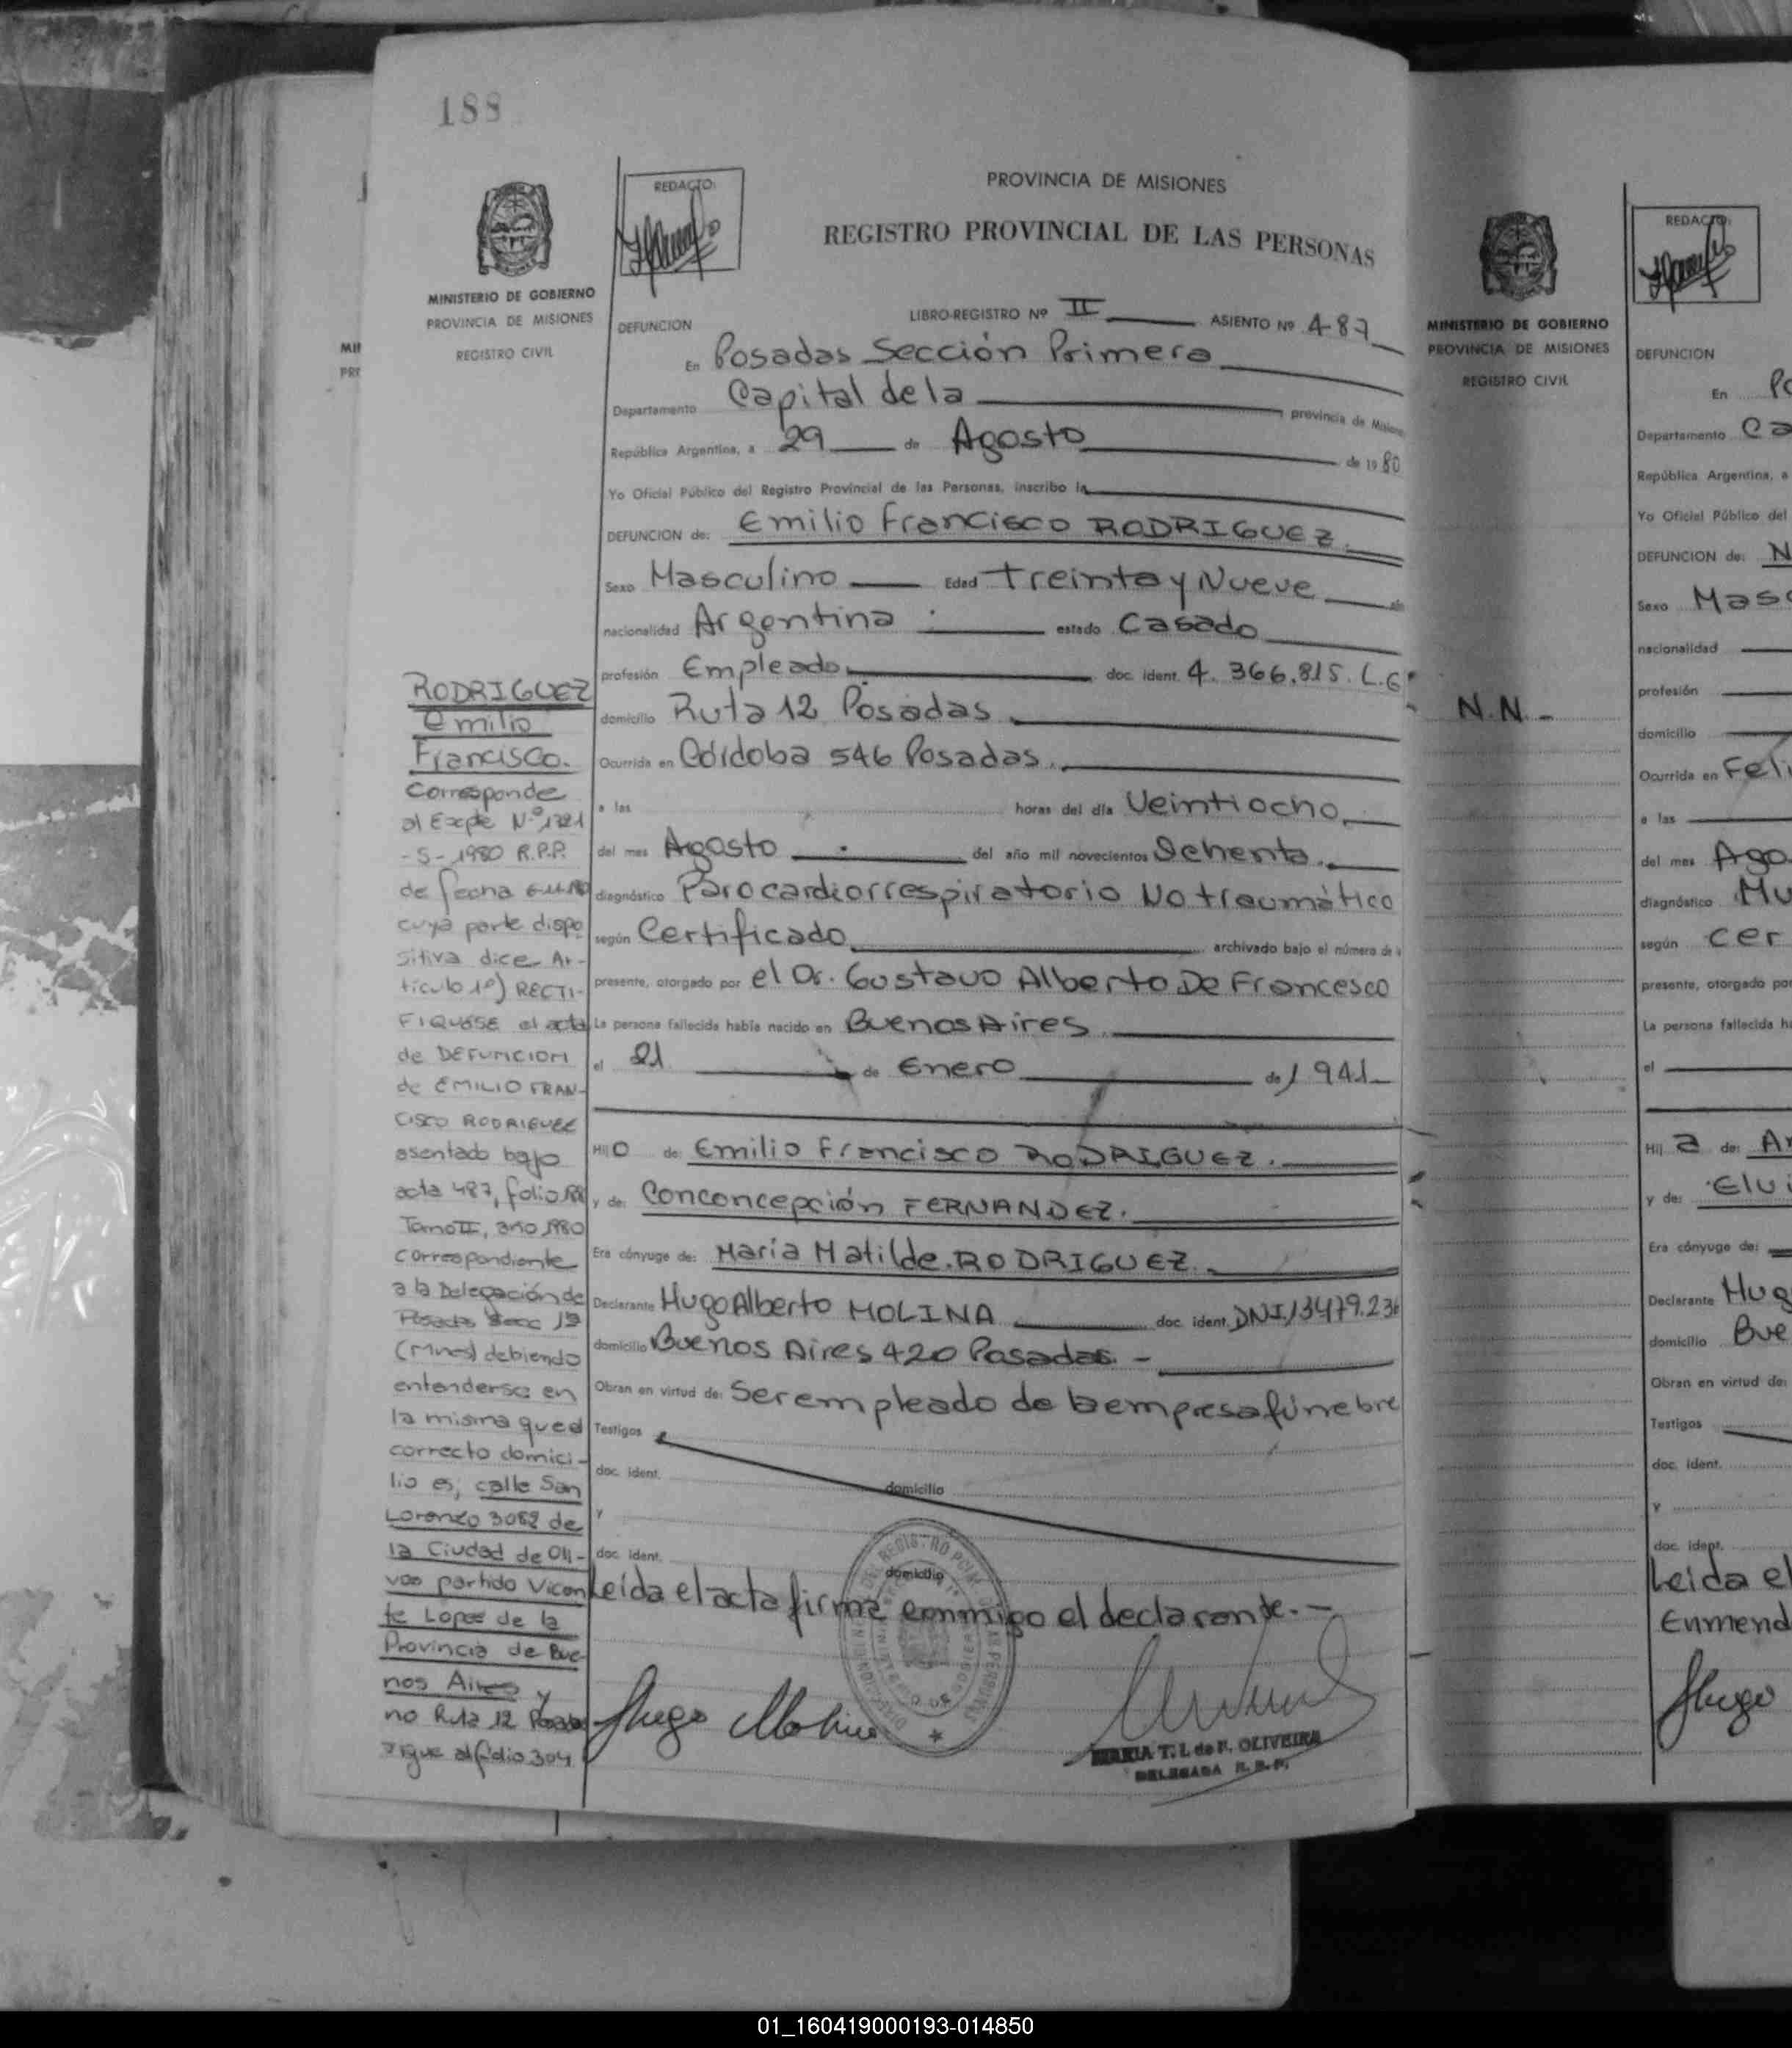 188
PROVINCIA DE MISIONES
REGISTRO PROVINCIAL DE LAS PERSONAS
REDACTO:
MINISTERIO DE GOBIERNO
PROVINCIA DE MISIONES
REGISTRO CIVIL
DEFUNCION
LIBRO-REGISTRO Nº II ASIENTO Nº 487
En Posadas Sección Primera
Departamento Capital de la provincia de Misiones
República Argentina, a 29 de Agosto de 1980
Yo Oficial Público del Registro Provincial de las Personas, inscribo la
DEFUNCION de: Emilio Francisco RODRIGUEZ.
Sexo Masculino Edad Treinta y Nueve
nacionalidad Argentina estado Casado
profesión Empleado doc. ident. 4.366.815. L.E
domicilio Ruta 12 Posadas
Ocurrida en Córdoba 546 Posadas.
a las horas del día Veintiocho
del mes Agosto del año mil novecientos Ochenta.
diagnóstico Paro cardiorrespiratorio No traumático
según Certificado archivado bajo el número de
presente, otorgado por el Dr. Gustavo Alberto De Francesco
La persona fallecida había nacido en Buenos Aires
el 21 de Enero de 1941
Hijo de: Emilio Francisco RODRIGUEZ.
y de: Conconcepción FERNANDEZ.
Era cónyuge de: María Matilde RODRIGUEZ.
Declarante Hugo Alberto MOLINA doc. ident. DNI 13479.236
domicilio Buenos Aires 420 Posadas. -
Obran en virtud de: Ser empleado de la empresa fúnebre
Testigos
doc. ident. domicilio
y
doc. ident. domicilio
Leída el acta firma conmigo el declarante. -
Hugo Molina
MARIA T. L de F. OLIVEIRA
DELEGADA R. P. P.
RODRIGUEZ
Emilio
Francisco.
Corresponde
al Expte Nº 1321
-S- 1980 R.P.P.
de fecha
cuya parte dispo
sitiva dice Ar-
tículo 1º) RECTI-
FIQUESE el acta
de DEFUNCION
de EMILIO FRAN-
CISCO RODRIGUEZ
asentado bajo
acta 487, folio 188
Tomo II, año 1980
correspondiente
a la Delegación de
Posadas Secc 1ª
(Mnes) debiendo
entenderse en
la misma que el
correcto domici-
lio es; calle San
Lorenzo 3052 de
la Ciudad de Oli-
vos partido Vicen
te Lopez de la
Provincia de Bue-
nos Aires y
no Ruta 12 Posadas
Sigue al folio 304
MINISTERIO DE GOBIERNO
PROVINCIA DE MISIONES
REGISTRO CIVIL
N.N. -
REDACTO:
DEFUNCION
En
Departamento
República Argentina, a
Yo Oficial Público del
DEFUNCION de:
Sexo
nacionalidad
profesión
domicilio
Ocurrida en
a las
del mes
diagnóstico
según
presente, otorgado por
La persona fallecida
el
Hija de:
y de:
Era cónyuge de:
Declarante
domicilio
Obran en virtud de:
Testigos
doc. ident.
y
doc. ident.
Leída
Hugo
01_160419000193-014850